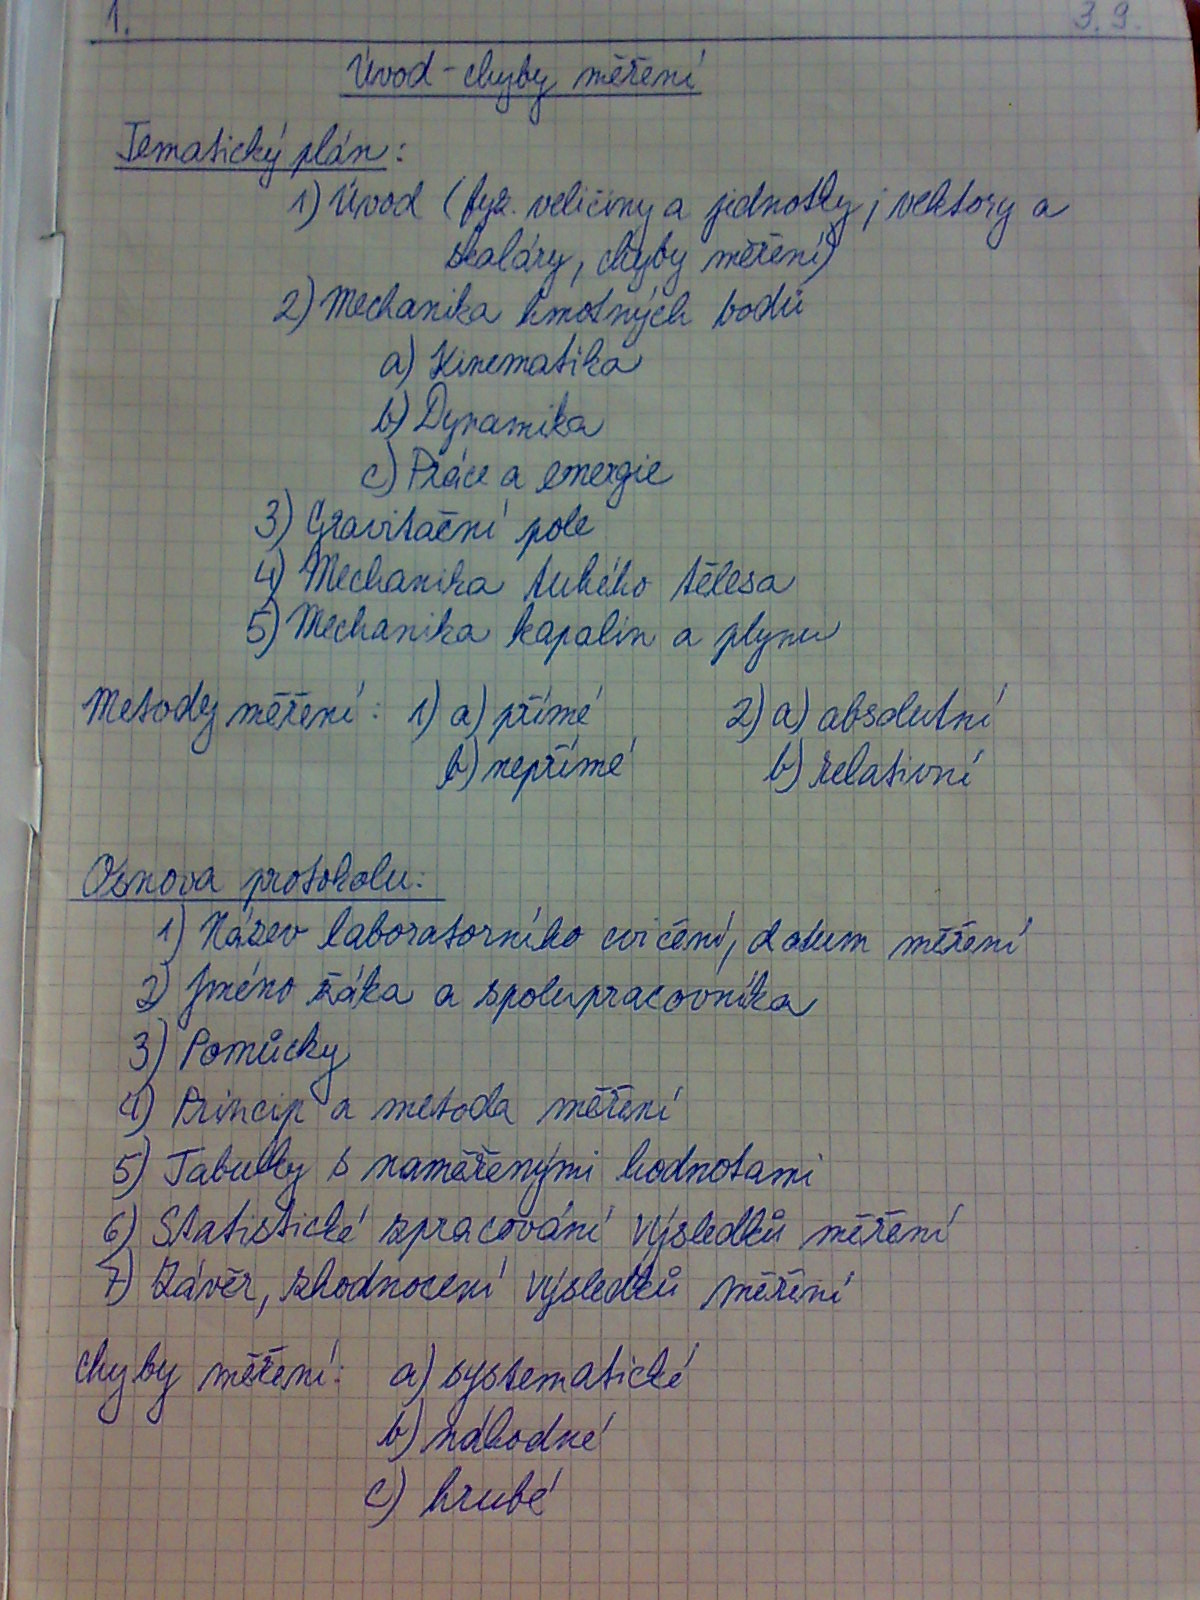 1. 3.9.
Úvod - chyby měření
Tematický plán:
1) Úvod (fyz. veličiny a jednotky; vektory a
skaláry, chyby měření)
2) Mechanika hmotných bodů
a) Kinematika
b) Dynamika
c) Práce a energie
3) Gravitační pole
4) Mechanika tuhého tělesa
5) Mechanika kapalin a plynu
Metody měření: 1) a) přímé 2) a) absolutní
b) nepřímé b) relativní
Osnova protokolu:
1) Název laboratorního cvičení, datum měření
2) Jméno žáka a spolupracovníka
3) Pomůcky
4) Princip a metoda měření
5) Tabulky s naměřenými hodnotami
6) Statistické zpracování výsledků měření
7) Závěr, zhodnocení výsledků měření
chyby měření: a) systematické
b) náhodné
c) hrubé